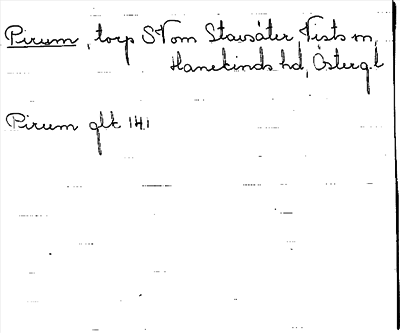 Pirum, torp SVom Stavsäter, Vists sn,
Hanekinds hd, Östergl
Pirum glk 141